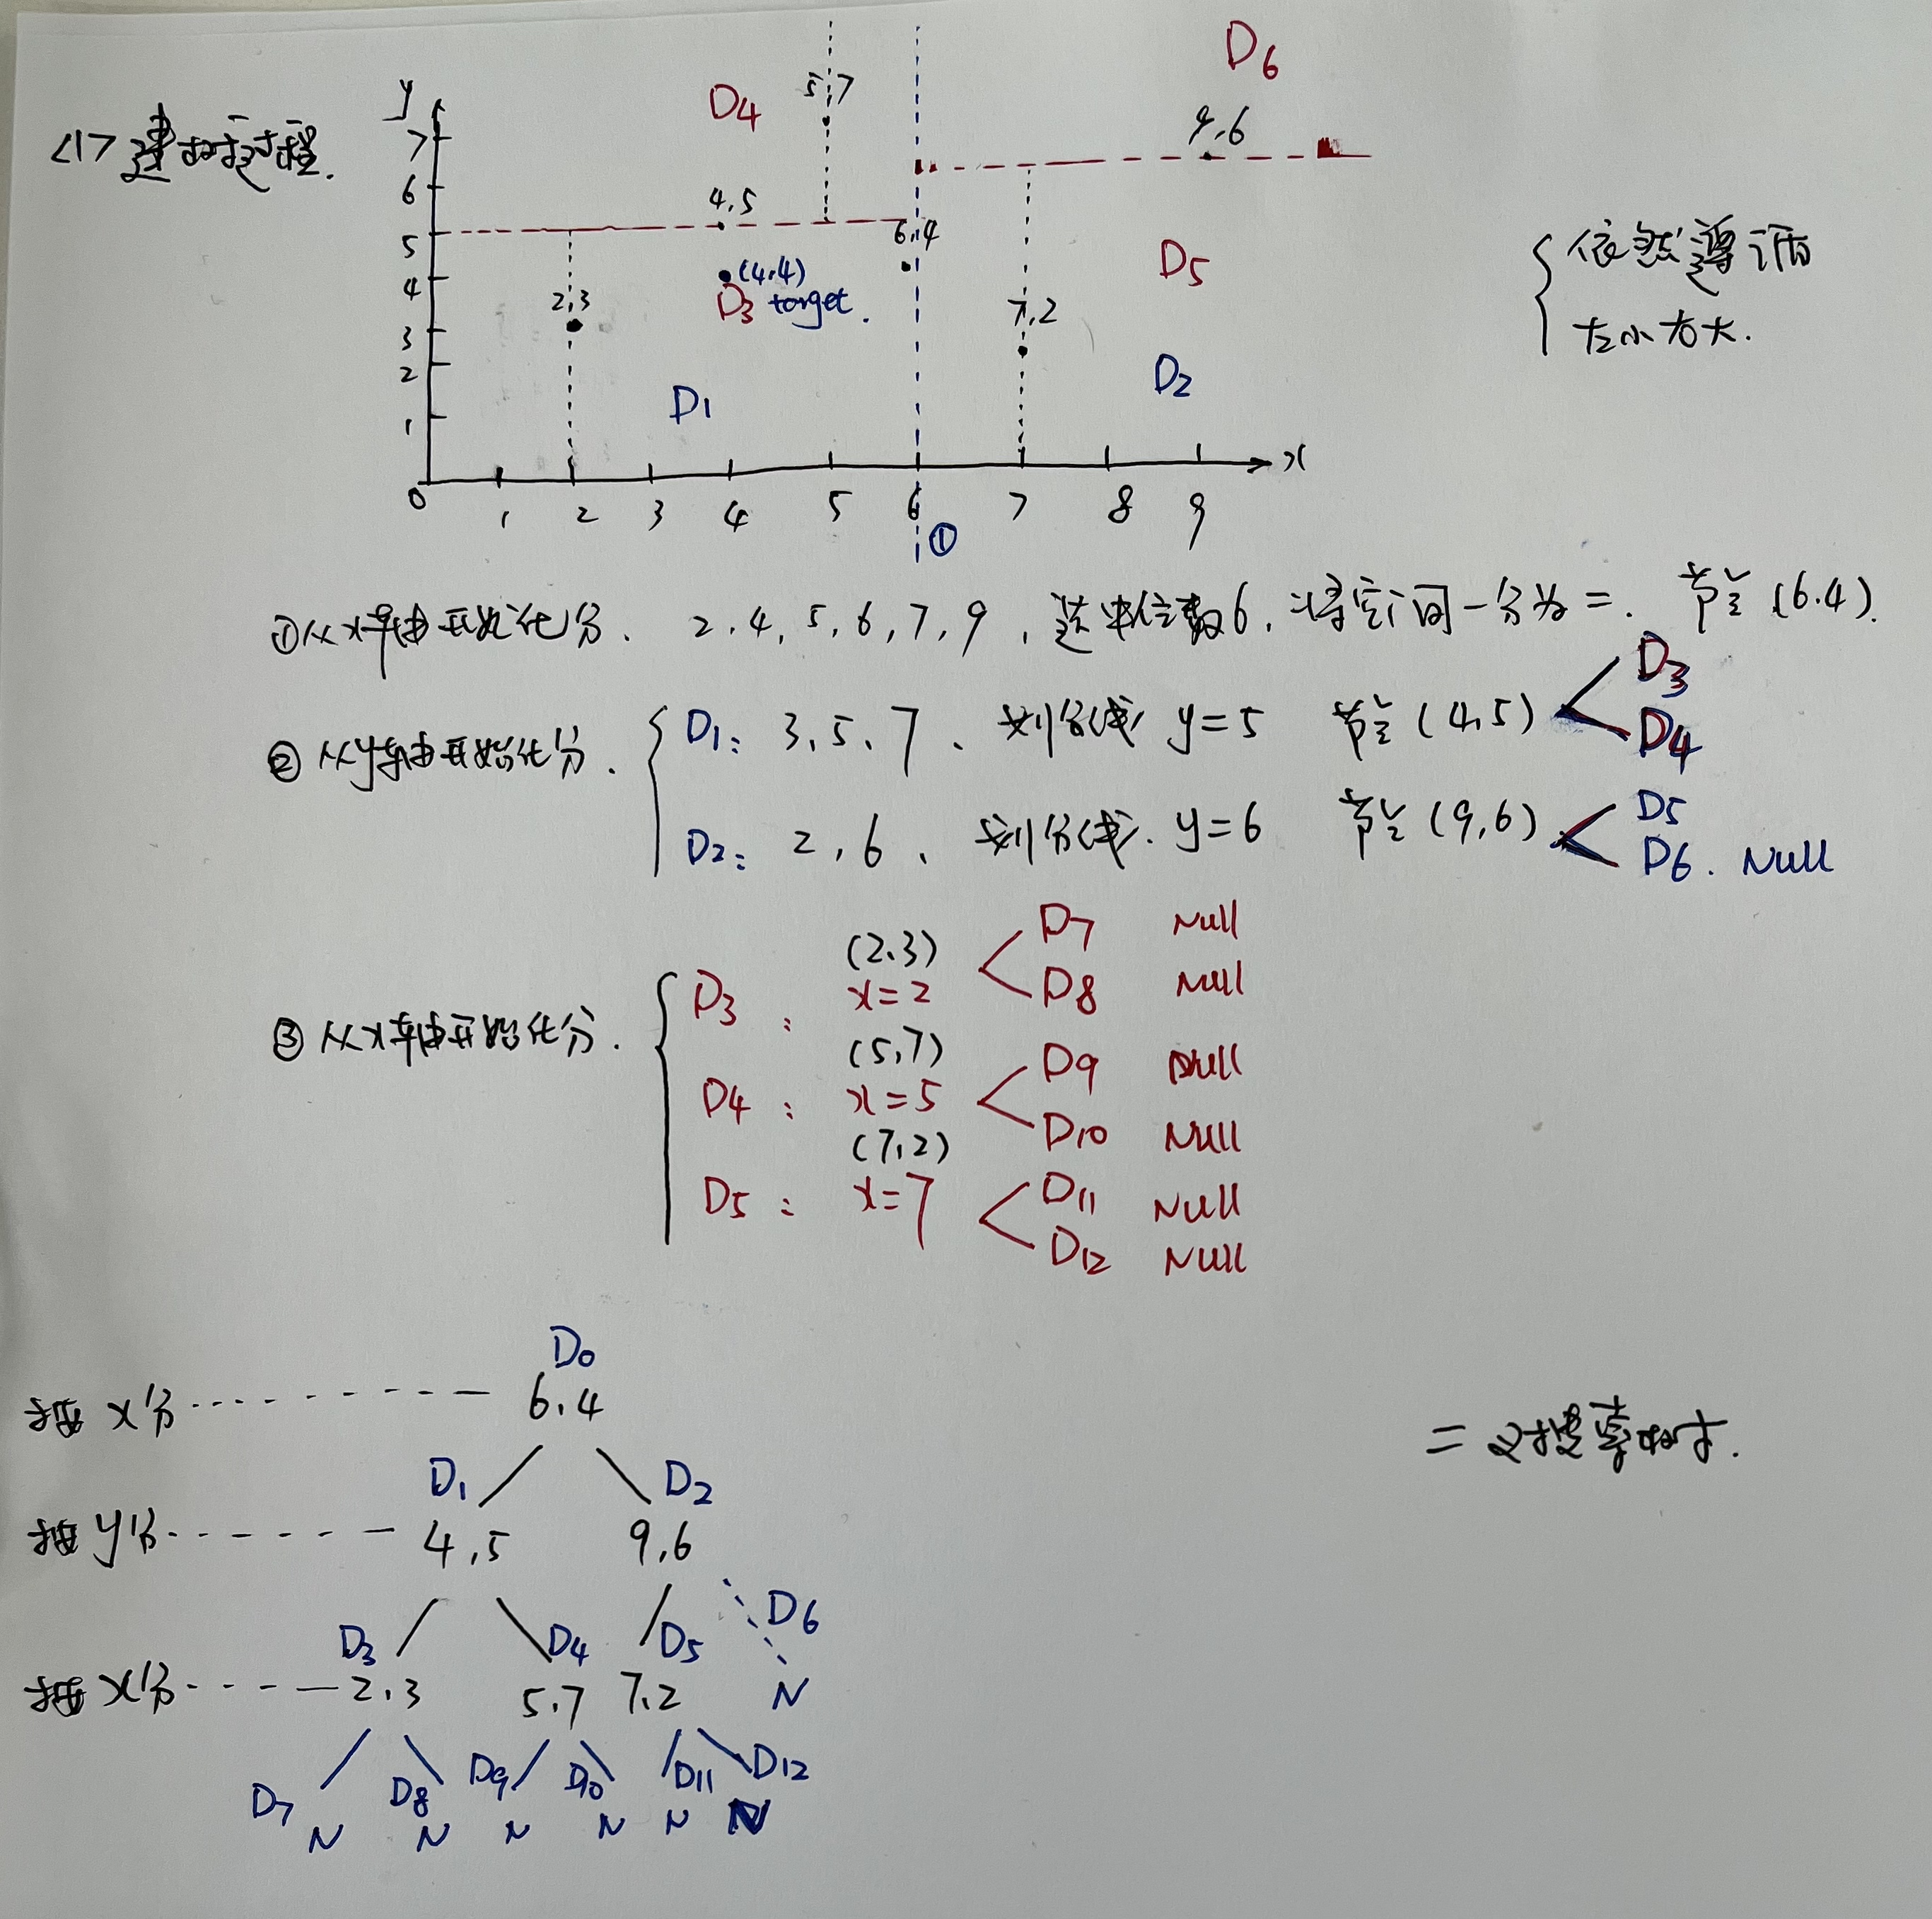 <1> 建树过程.
y
7
6
5
4
3
2
1
0
1 2 3 4 5 6 7 8 9
x
①
D4
5,7
D6
9,6
4,5
6,4
(4,4)
D3 target.
2,3
7,2
D5
D1
D2
依然遵循
左小右大.
①从x轴开始化分. 2,4,5,6,7,9,选中位数6,将空间一分为二. 节点(6.4).
②从y轴开始化分.
D1: 3,5,7、 划分线 y=5 节点(4,5)
D3
D4
D2: 2,6、 划分线. y=6 节点(9,6)
D5
D6. Null
③从x轴开始化分.
D3: (2,3) x=2
D7 Null
D8 Null
D4: (5,7) x=5
D9 Null
D10 Null
D5: (7,2) x=7
D11 Null
D12 Null
D0
按x分 6,4
D1 D2
按y分 4,5 9,6
D3 D4 D5 D6
按x分 2,3 5,7 7,2 N
D7 D8 D9 D10 D11 D12
N N N N N N
二叉搜索树.